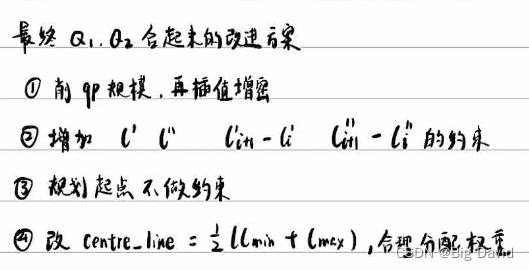 最终 Q₁. Q₂ 合起来的改进方案
① 削 qp 规模, 再插值增密
② 增加 l' l'' l'ᵢ₊₁ - l'ᵢ l''ᵢ₊₁ - l''ᵢ 的约束
③ 规划起点不做约束
④ 改 centre_line = ½ (lmin + lmax), 合理分配权重.
CSDN @Big David